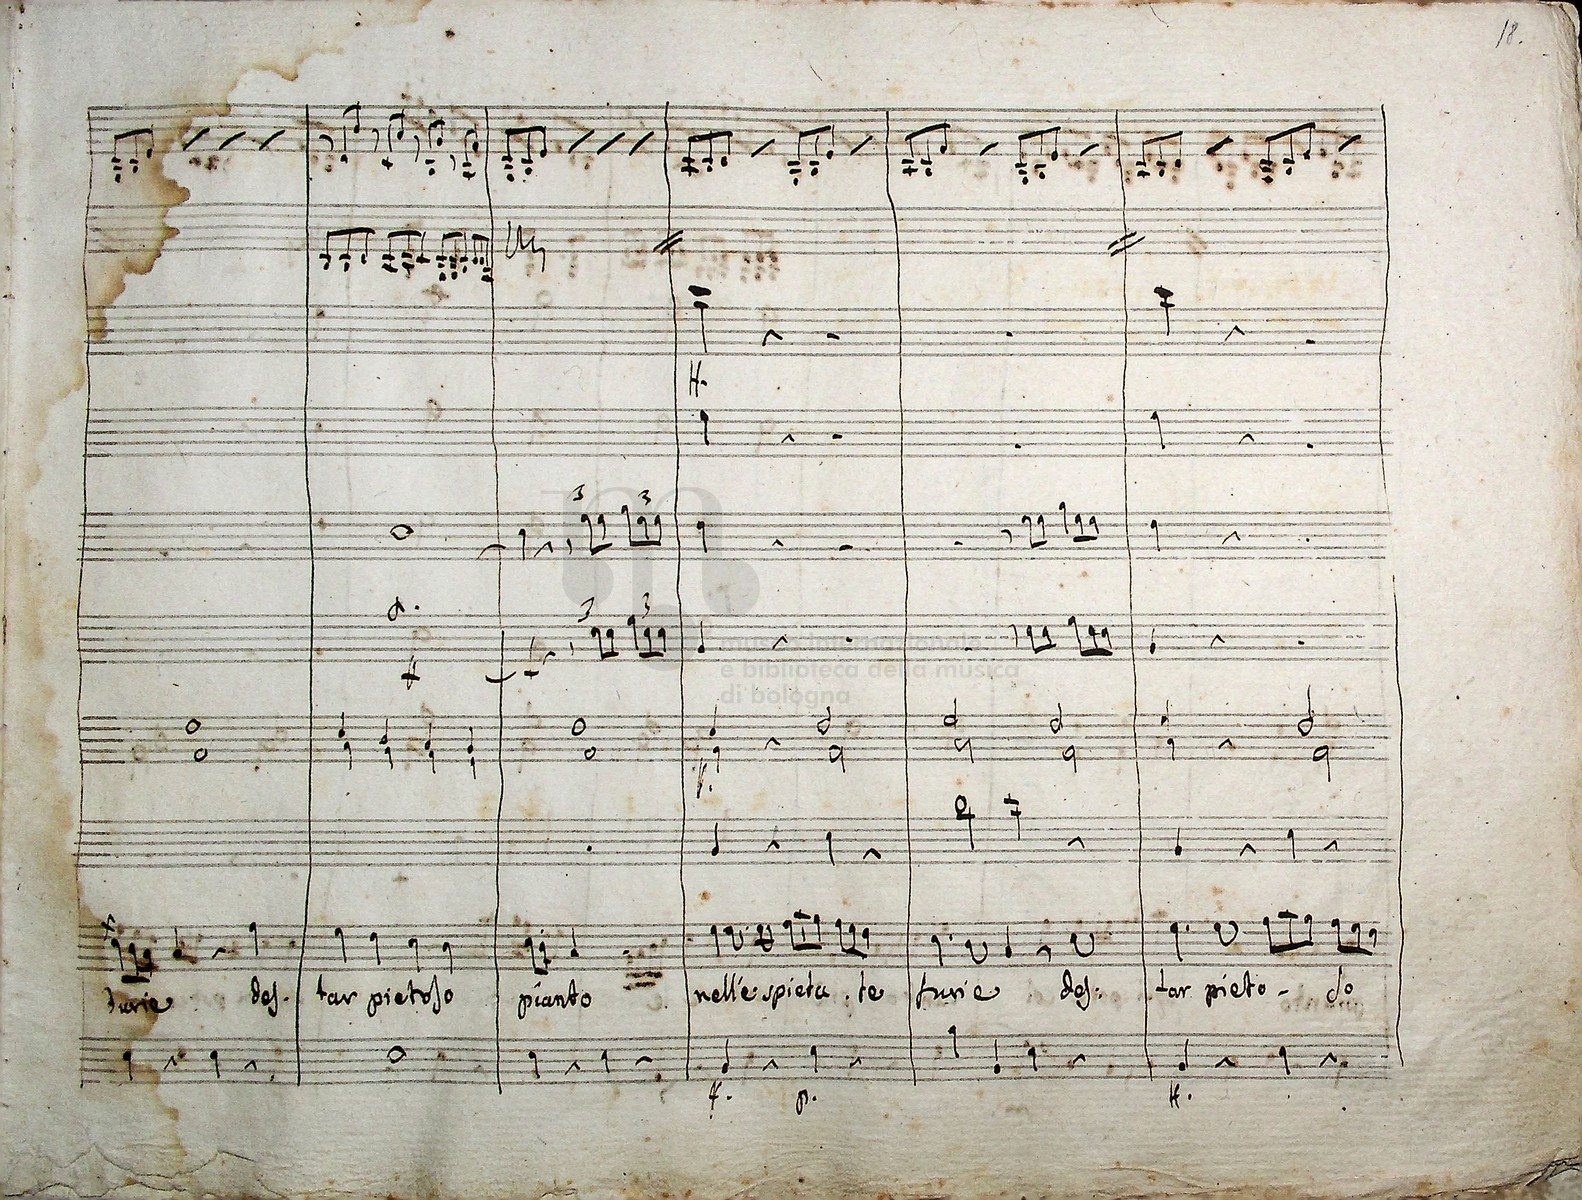 18.
3 3
3 3
museo internazionale
e biblioteca della musica
di bologna
furie des- tar pietoso pianto nelle spieta - te furie des- tar pieto - so
f. p.